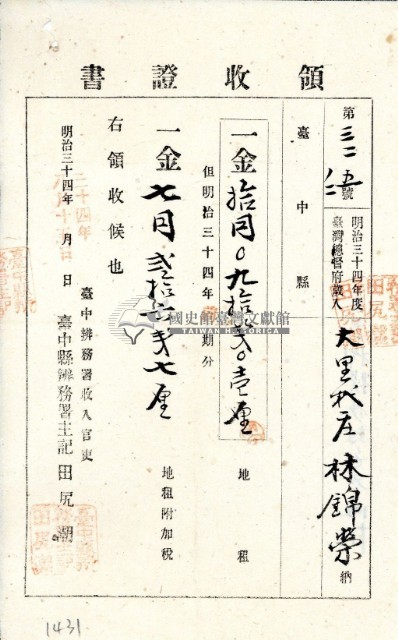 領收證書
第三二伍號
明治三十四年度
臺灣總督府歲入
大里杙庄 林錦榮 納
臺中縣
一金拾円〇九拾 〇壱厘 地租
但明治三十四年 期分
一金七円弐拾 弐七厘 地租附加稅
右領收候也
明治三十四年 月 日
三十四年
臺中辨務署收入官吏
臺中縣辨務署主記 田尻潮
國史館臺灣文獻館
TAIWAN HISTORICA
1431